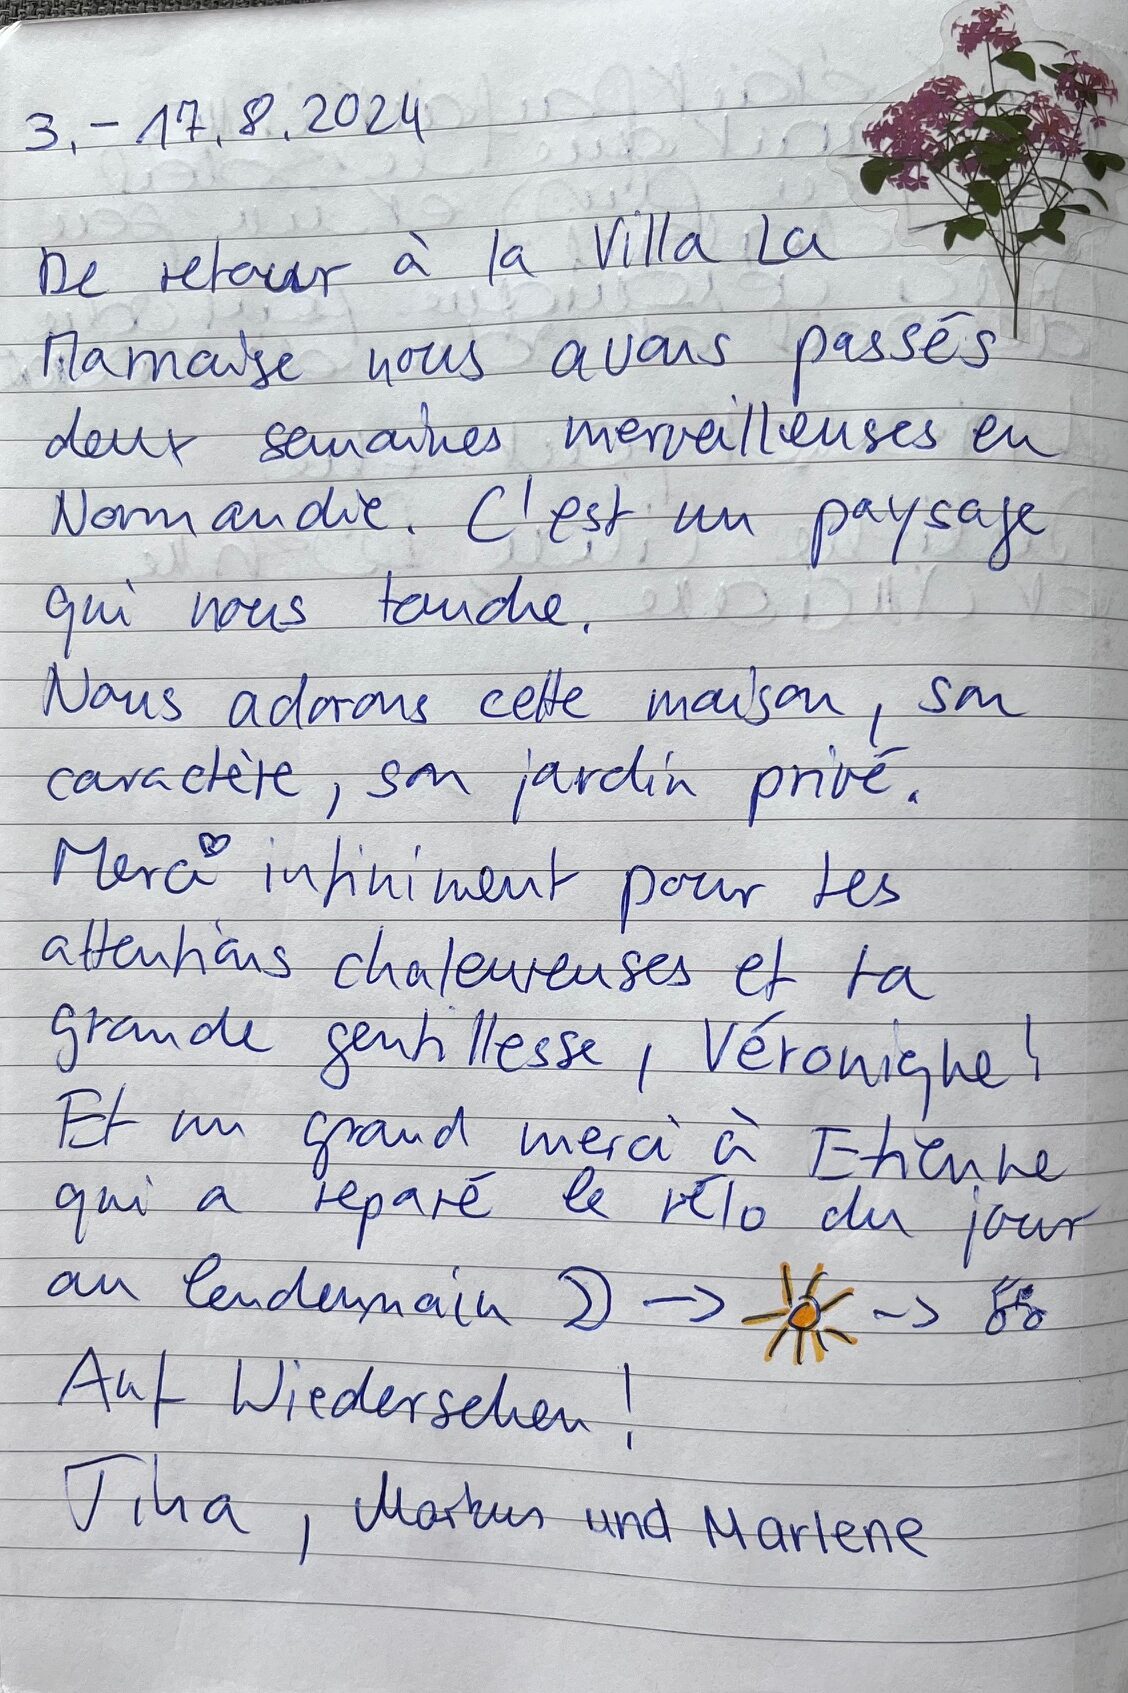 3.-17.8.2024
De retour à la Villa La
Marnaise nous avons passés
deux semaines merveilleuses en
Normandie. C'est un paysage
qui nous touche.
Nous adorons cette maison, son
caractère, son jardin privé.
Merci infiniment pour tes
attentions chaleureuses et ta
grande gentillesse, Véronique!
Et un grand merci à Etienne
qui a reparé le vélo du jour
au lendemain
Auf Wiedersehen!
Tina, Markus und Marlene